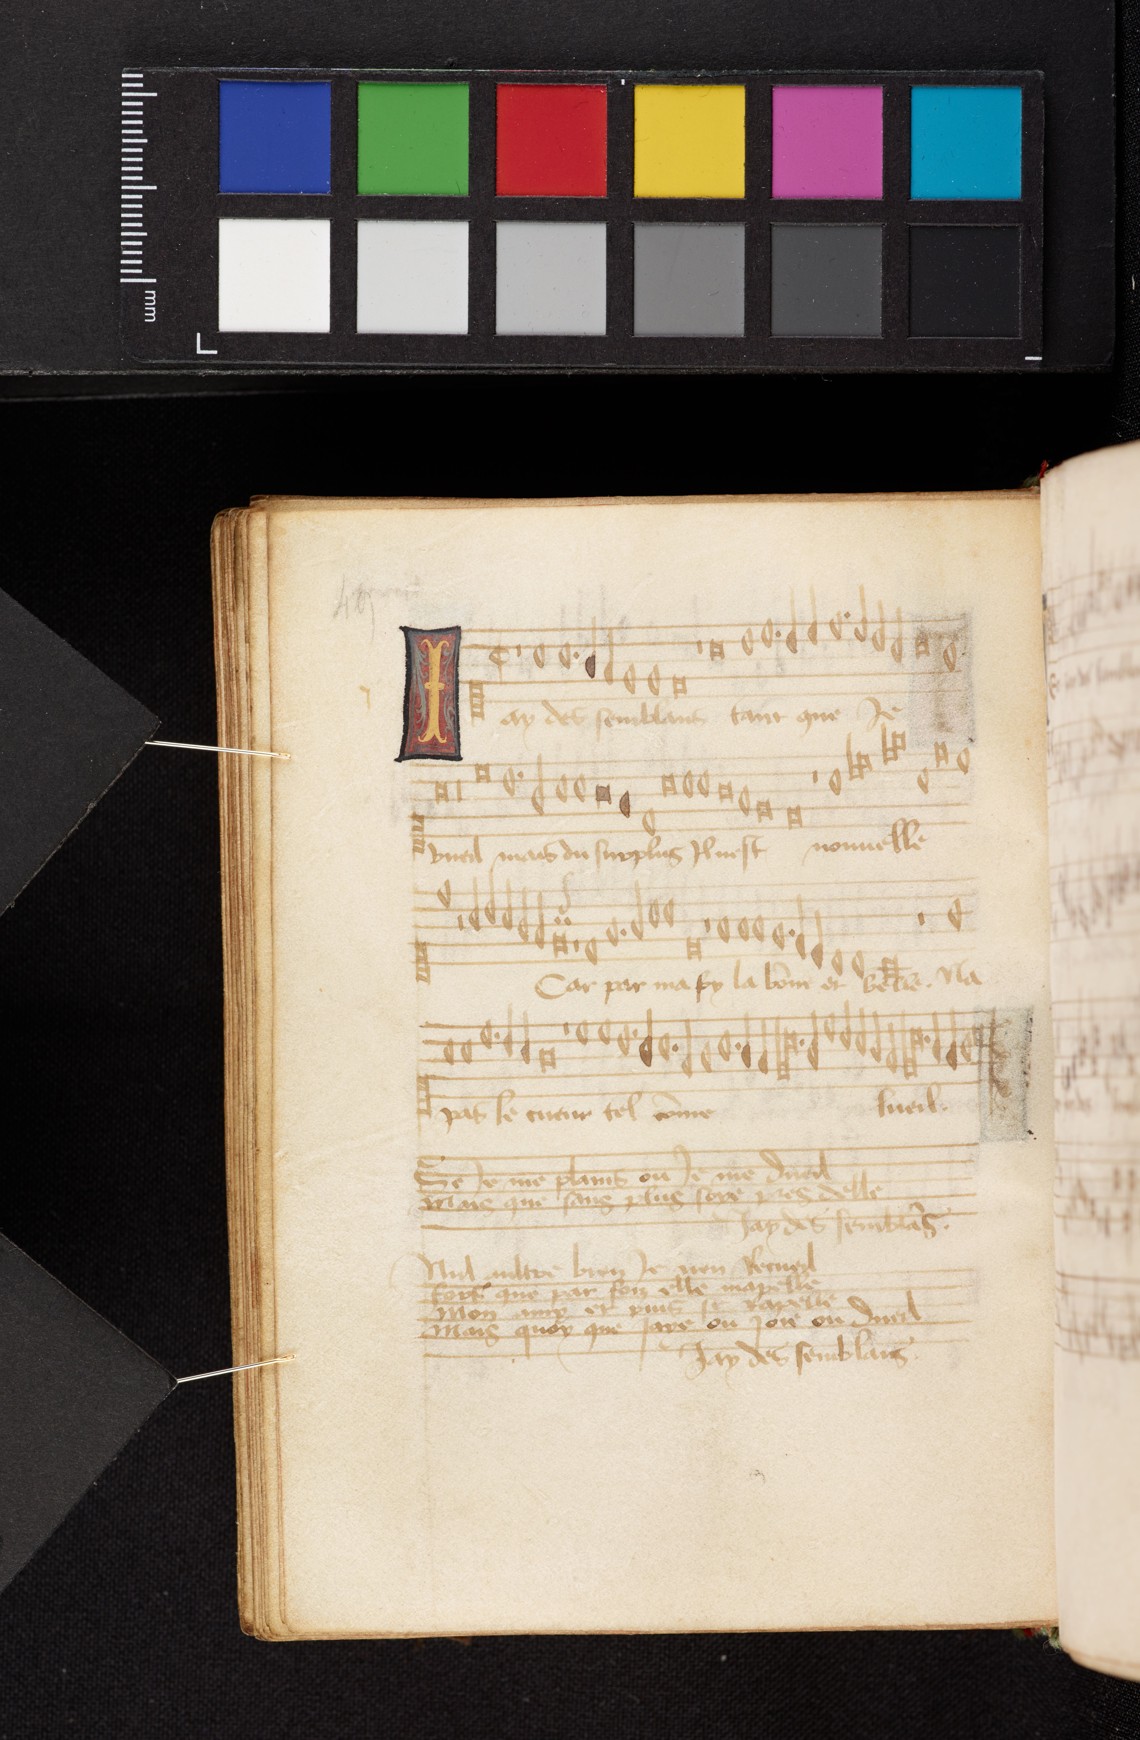 mm
Iay des semblans tant que Je
vueil mais du surplus Il nest nouuelle
Car par ma foy la bōne et belle. Na
pas le cueur tel cōme lueil.
Se Je me plains ou Je me dueil
Mais que sans plus soye pres delle
Jay des semblās.
Nul aultre bien Je nen Recueil
fors que par foiz elle mapelle
Mon amy et puis se rapelle
Mais quoy que jaye ou joie ou dueil
Jay des semblans.